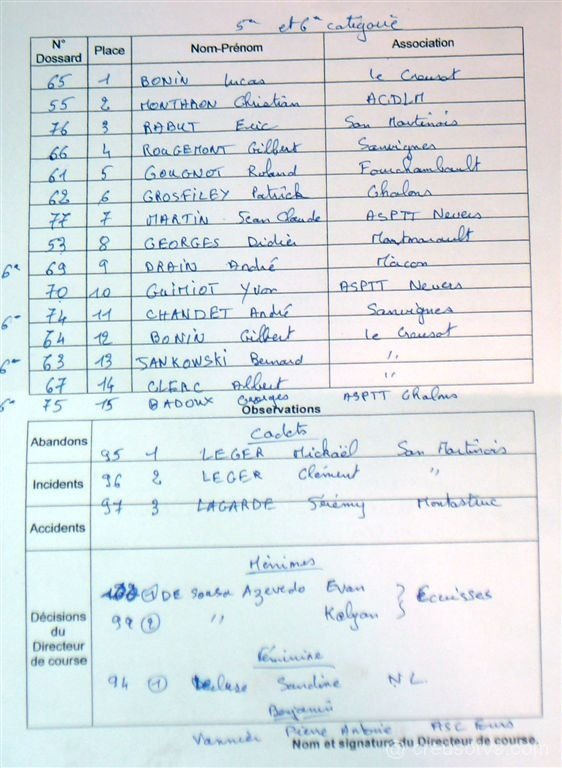 5e et 6e catégorie
N° Dossard Place Nom-Prénom Association
65 1 BONIN Lucas Le Creusot
55 2 MONTHAON Christian ACDLM
76 3 RABUT Eric San Martinois
66 4 ROUGEMONT Gilbert Sanvignes
61 5 GOUGNOT Roland Fourchambault
62 6 GROSFILEY Patrick Chalons
77 7 MARTIN Jean Claude ASPTT Nevers
53 8 GEORGES Didier Montmarault
6e 69 9 DRAIN André Mâcon
70 10 GUIMIOT Yvon ASPTT Nevers
74 11 CHANDET André Sanvignes
6e 64 12 BONIN Gilbert Le Creusot
6e 63 13 JANKOWSKI Bernard "
67 14 CLERC Albert "
6e 75 15 BADOUX Georges ASPTT Chalons
Observations
Cadets
Abandons 95 1 LEGER Mickaël San Martinois
Incidents 96 2 LEGER Clément "
97 3 LAGARDE Jérémy
Accidents
Minimes
1 DE Sousa Azevedo Evan Ecuisses
Décisions du Directeur de course
2 " Kelyan
Féminine
94 1 Sandrine N.L.
Benjamin
Pierre Antoine ASC
Nom et signature du Directeur de course.